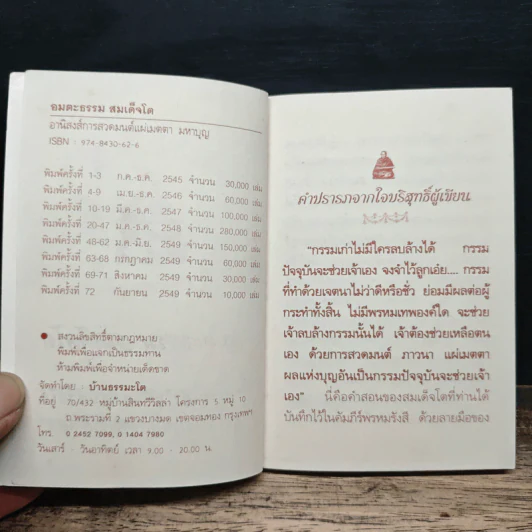 อมตะธรรม สมเด็จโต
อานิสงส์การสวดมนต์แผ่เมตตา มหาบุญ
ISBN : 974-8430-62-6
พิมพ์ครั้งที่ 1-3 ก.ค.-ธ.ค. 2545 จำนวน 30,000 เล่ม
พิมพ์ครั้งที่ 4-9 เม.ย.-ธ.ค. 2546 จำนวน 60,000 เล่ม
พิมพ์ครั้งที่ 10-19 มี.ค.-ธ.ค. 2547 จำนวน 100,000 เล่ม
พิมพ์ครั้งที่ 20-47 ม.ค.-ธ.ค. 2548 จำนวน 280,000 เล่ม
พิมพ์ครั้งที่ 48-62 ม.ค.-มิ.ย. 2549 จำนวน 150,000 เล่ม
พิมพ์ครั้งที่ 63-68 กรกฎาคม 2549 จำนวน 60,000 เล่ม
พิมพ์ครั้งที่ 69-71 สิงหาคม 2549 จำนวน 30,000 เล่ม
พิมพ์ครั้งที่ 72 กันยายน 2549 จำนวน 10,000 เล่ม
สงวนลิขสิทธิ์ตามกฎหมาย
พิมพ์เพื่อแจกเป็นธรรมทาน
ห้ามพิมพ์เพื่อจำหน่ายเด็ดขาด
จัดทำโดย : บ้านธรรมะโต
ที่อยู่ 70/432 หมู่บ้านสินทวีวิลล่า โครงการ 5 หมู่ 10
ถ.พระรามที่ 2 แขวงบางมด เขตจอมทอง กรุงเทพฯ
โทร. 0 2452 7099, 0 1404 7980
วันเสาร์ - วันอาทิตย์ เวลา 9.00 - 20.00 น.
คำปรารภจากใจบริสุทธิ์ผู้เขียน
"กรรมเก่าไม่มีใครลบล้างได้ กรรม
ปัจจุบันจะช่วยเจ้าเอง จงจำไว้ลูกเอ๋ย.... กรรม
ที่ทำด้วยเจตนาไม่ว่าดีหรือชั่ว ย่อมมีผลต่อผู้
กระทำทั้งสิ้น ไม่มีพรหมเทพองค์ใด จะช่วย
เจ้าลบล้างกรรมนั้นได้ เจ้าต้องช่วยเหลือตน
เอง ด้วยการสวดมนต์ ภาวนา แผ่เมตตา
ผลแห่งบุญอันเป็นกรรมปัจจุบันจะช่วยเจ้า
เอง" นี่คือคำสอนของสมเด็จโตที่ท่านได้
บันทึกไว้ในคัมภีร์พรหมรังสี ด้วยลายมือของ